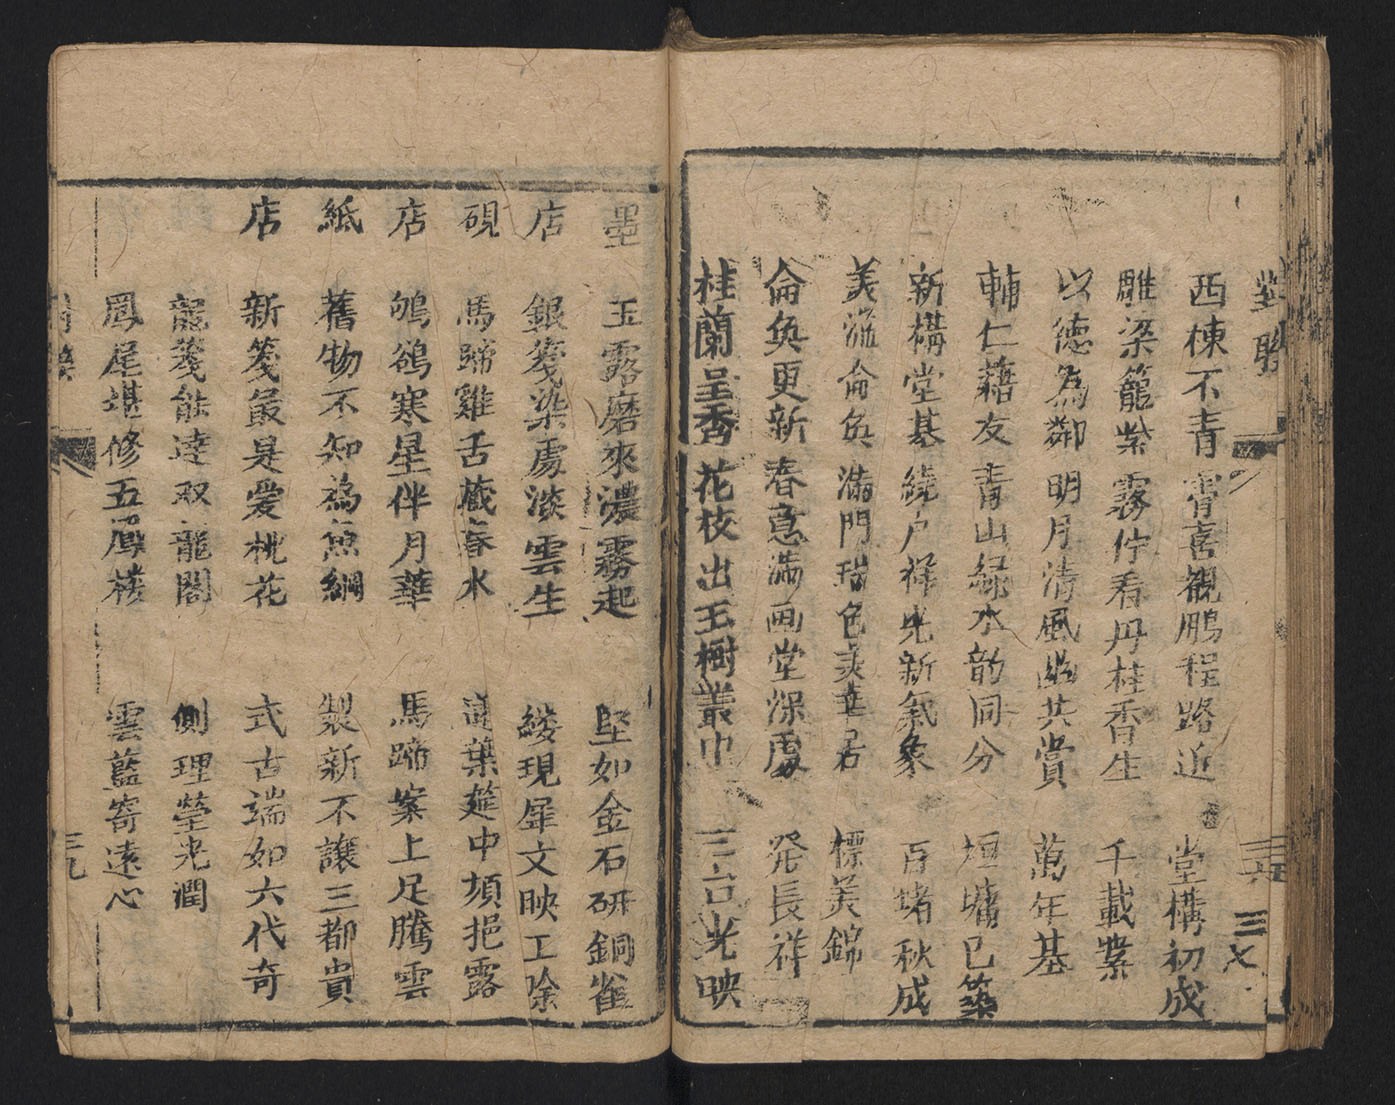 對聯
三六
三七
西棟不青霄喜覩鵬程路近 堂構初成
雕梁籠紫霧佇看丹桂香生 千載業
以德為鄰明月清風幽共賞 萬年基
輔仁藉友青山緑水韵同分 垣墉已築
新構堂基繞户祥光新氣象 百堵秋成
美流侖奐滿門瑞色美華居 標美錦
侖奐更新春意滿画堂深處 発長祥
桂蘭呈秀花枝出玉樹叢中 三台光映
墨 玉露磨來濃霧起 堅如金石研銅雀
店 銀箋染處淡雲生 綾現犀文映工除
硯 馬蹄雞舌藏春水 蕋中項挹露
店 鴝鵒寒星伴月華 馬蹄案上足騰雲
紙 舊物不知為魚網 製新不讓三都貴
店 新箋最是爱桃花 式古端如六代奇
龍箋能達双龍閣 側理瑩光潤
鳳尾堪修五鳳楼 雲藍寄遠心
三九